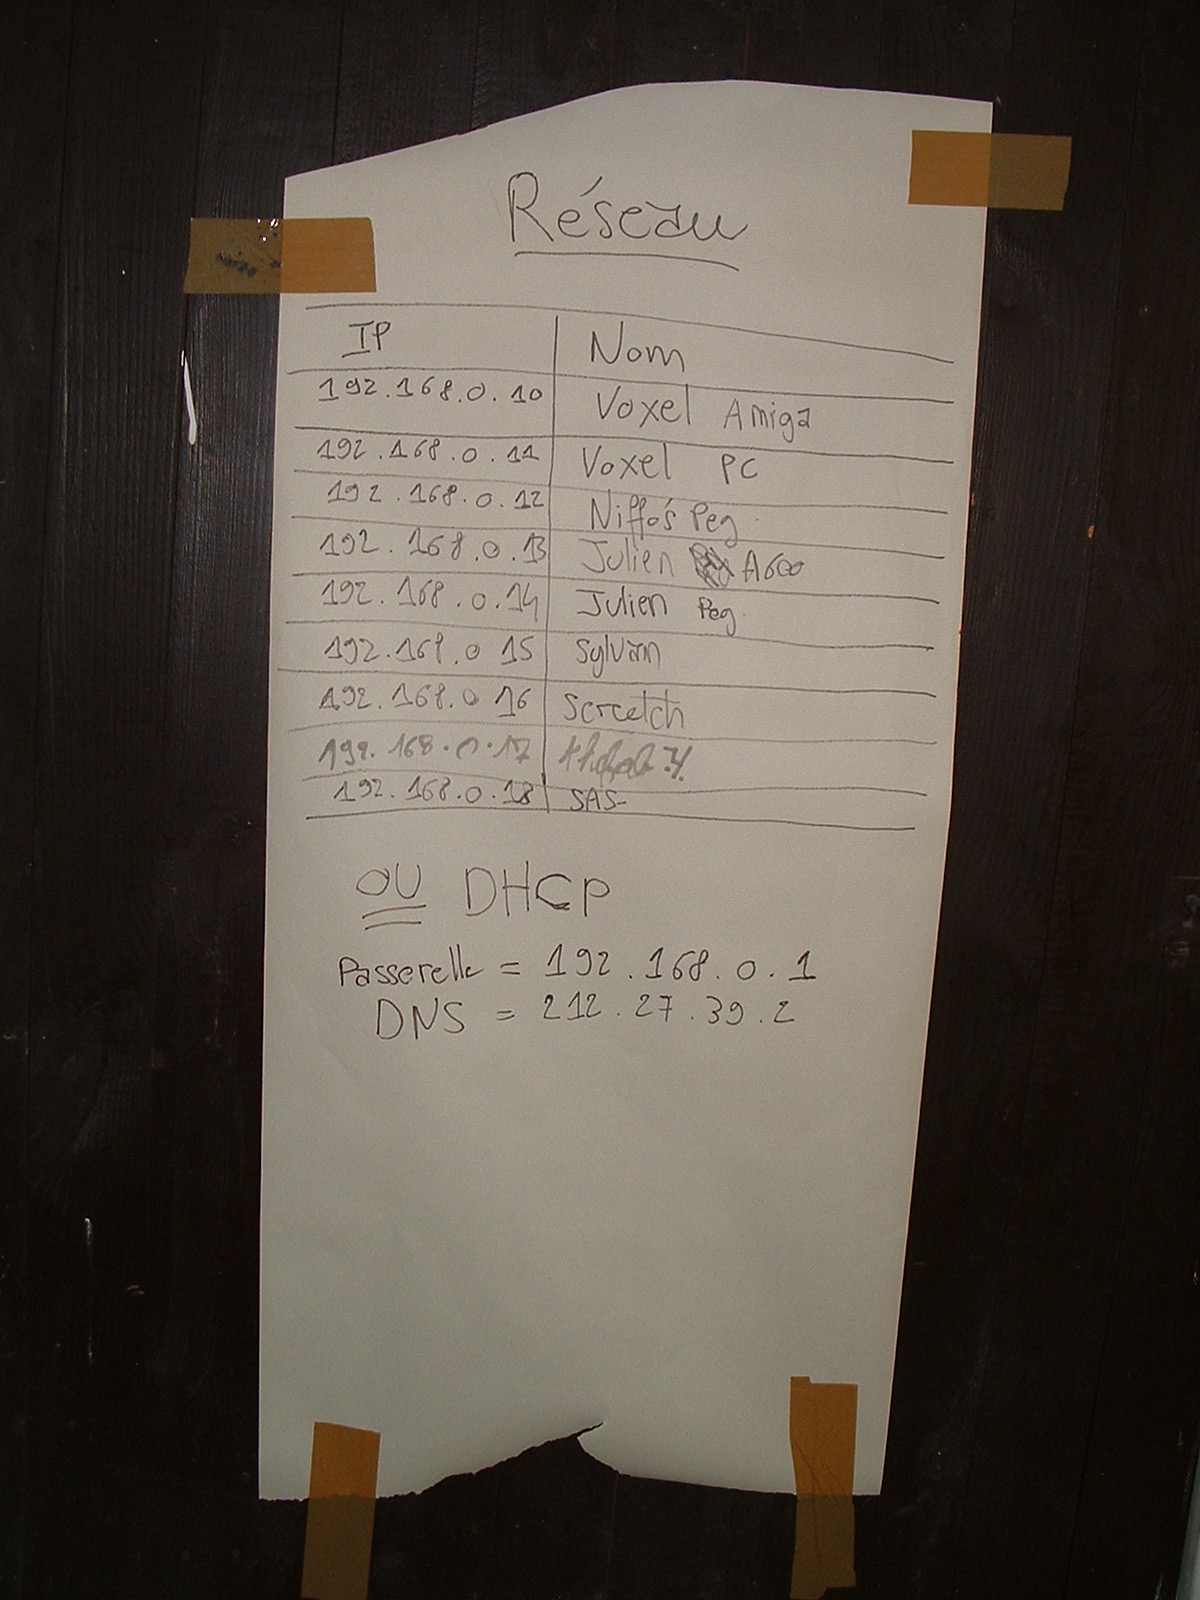 Réseau
IP Nom
192.168.0.10 Voxel Amiga
192.168.0.11 Voxel PC
192.168.0.12 Niffo's Peg.
192.168.0.13 Julien A600
192.168.0.14 Julien Peg.
192.168.0 15 Sylvain
192.168.0 16 Scretch
192.168.0.17
192.168.0.18 SAS-
OU DHCP
Passerelle = 192.168.0.1
DNS = 212.27.39.2